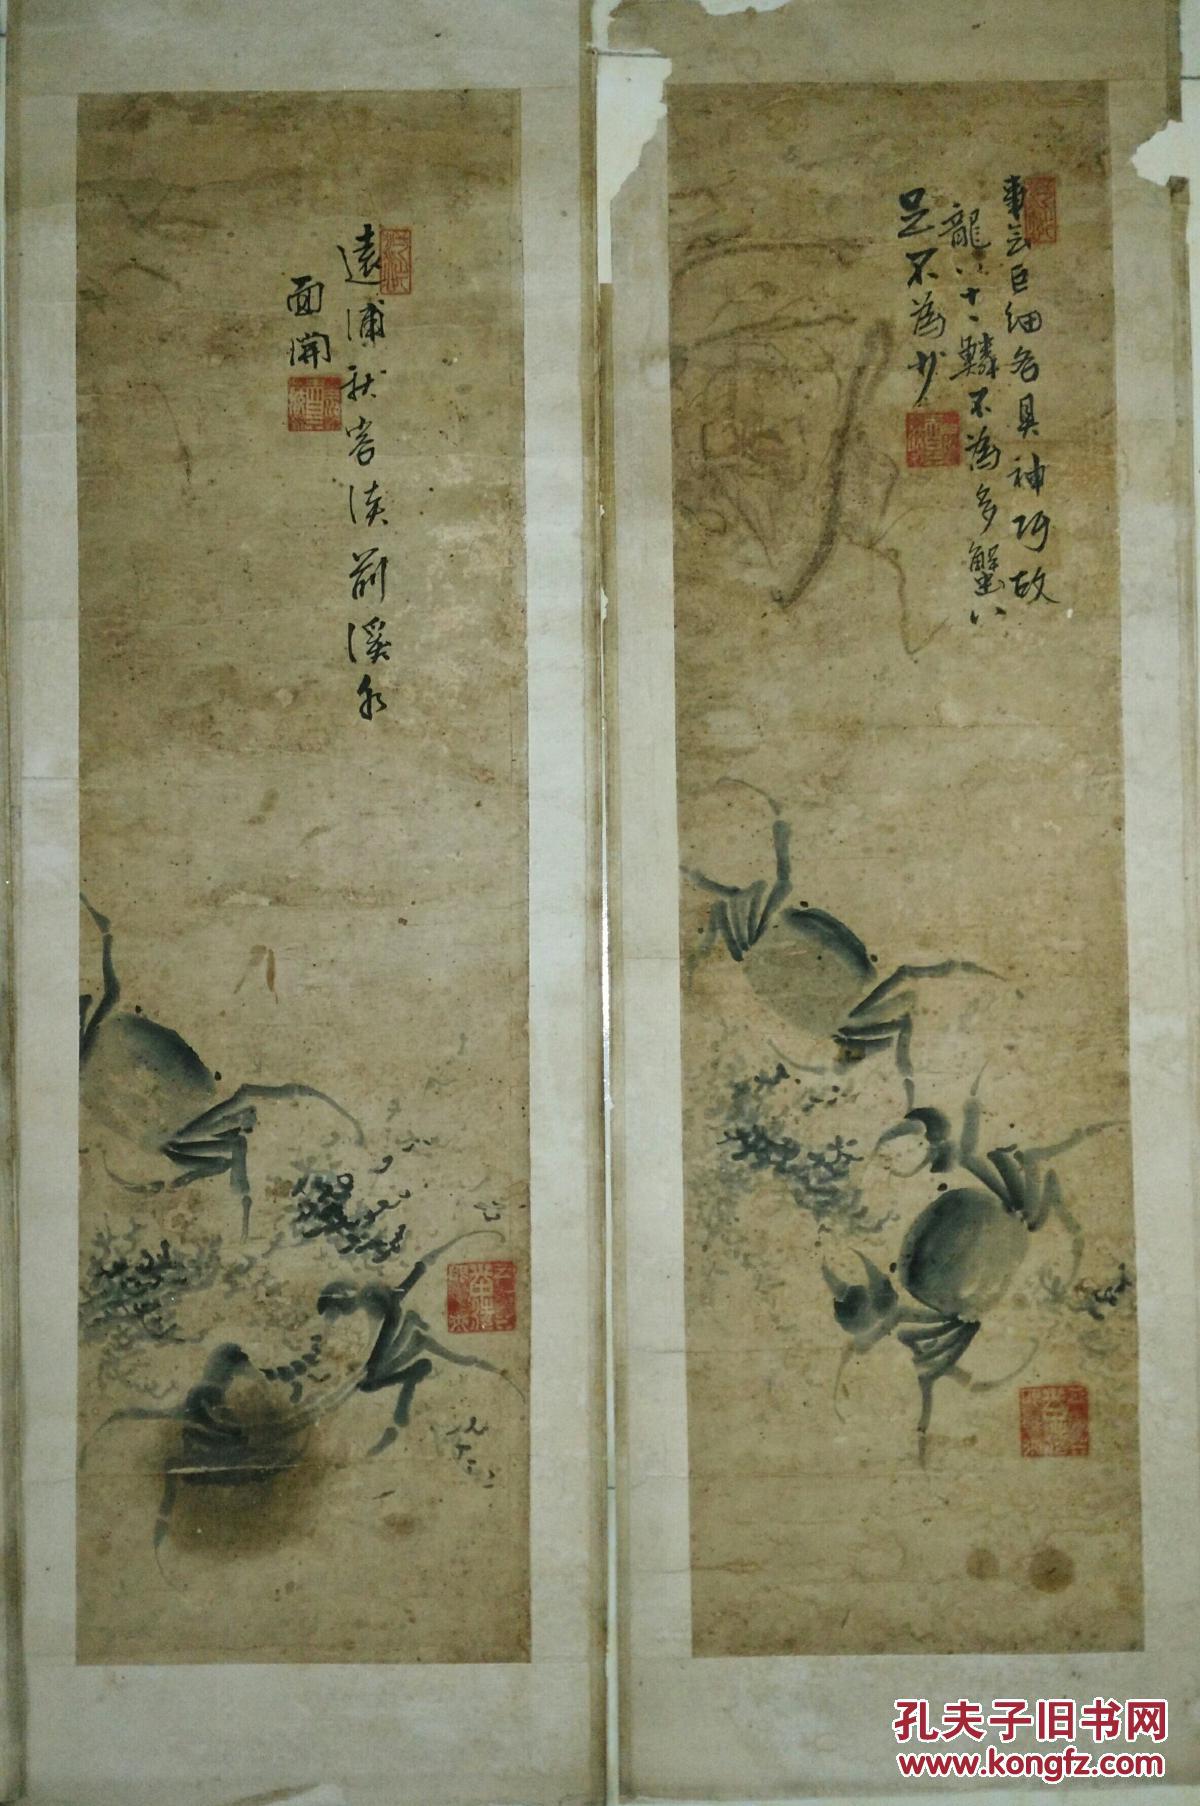 事無巨細各具神巧故
龍八十一鱗不為多蟹八
足不為少
遠浦秋容淡前溪水
面開
孔夫子旧书网
www.kongfz.com